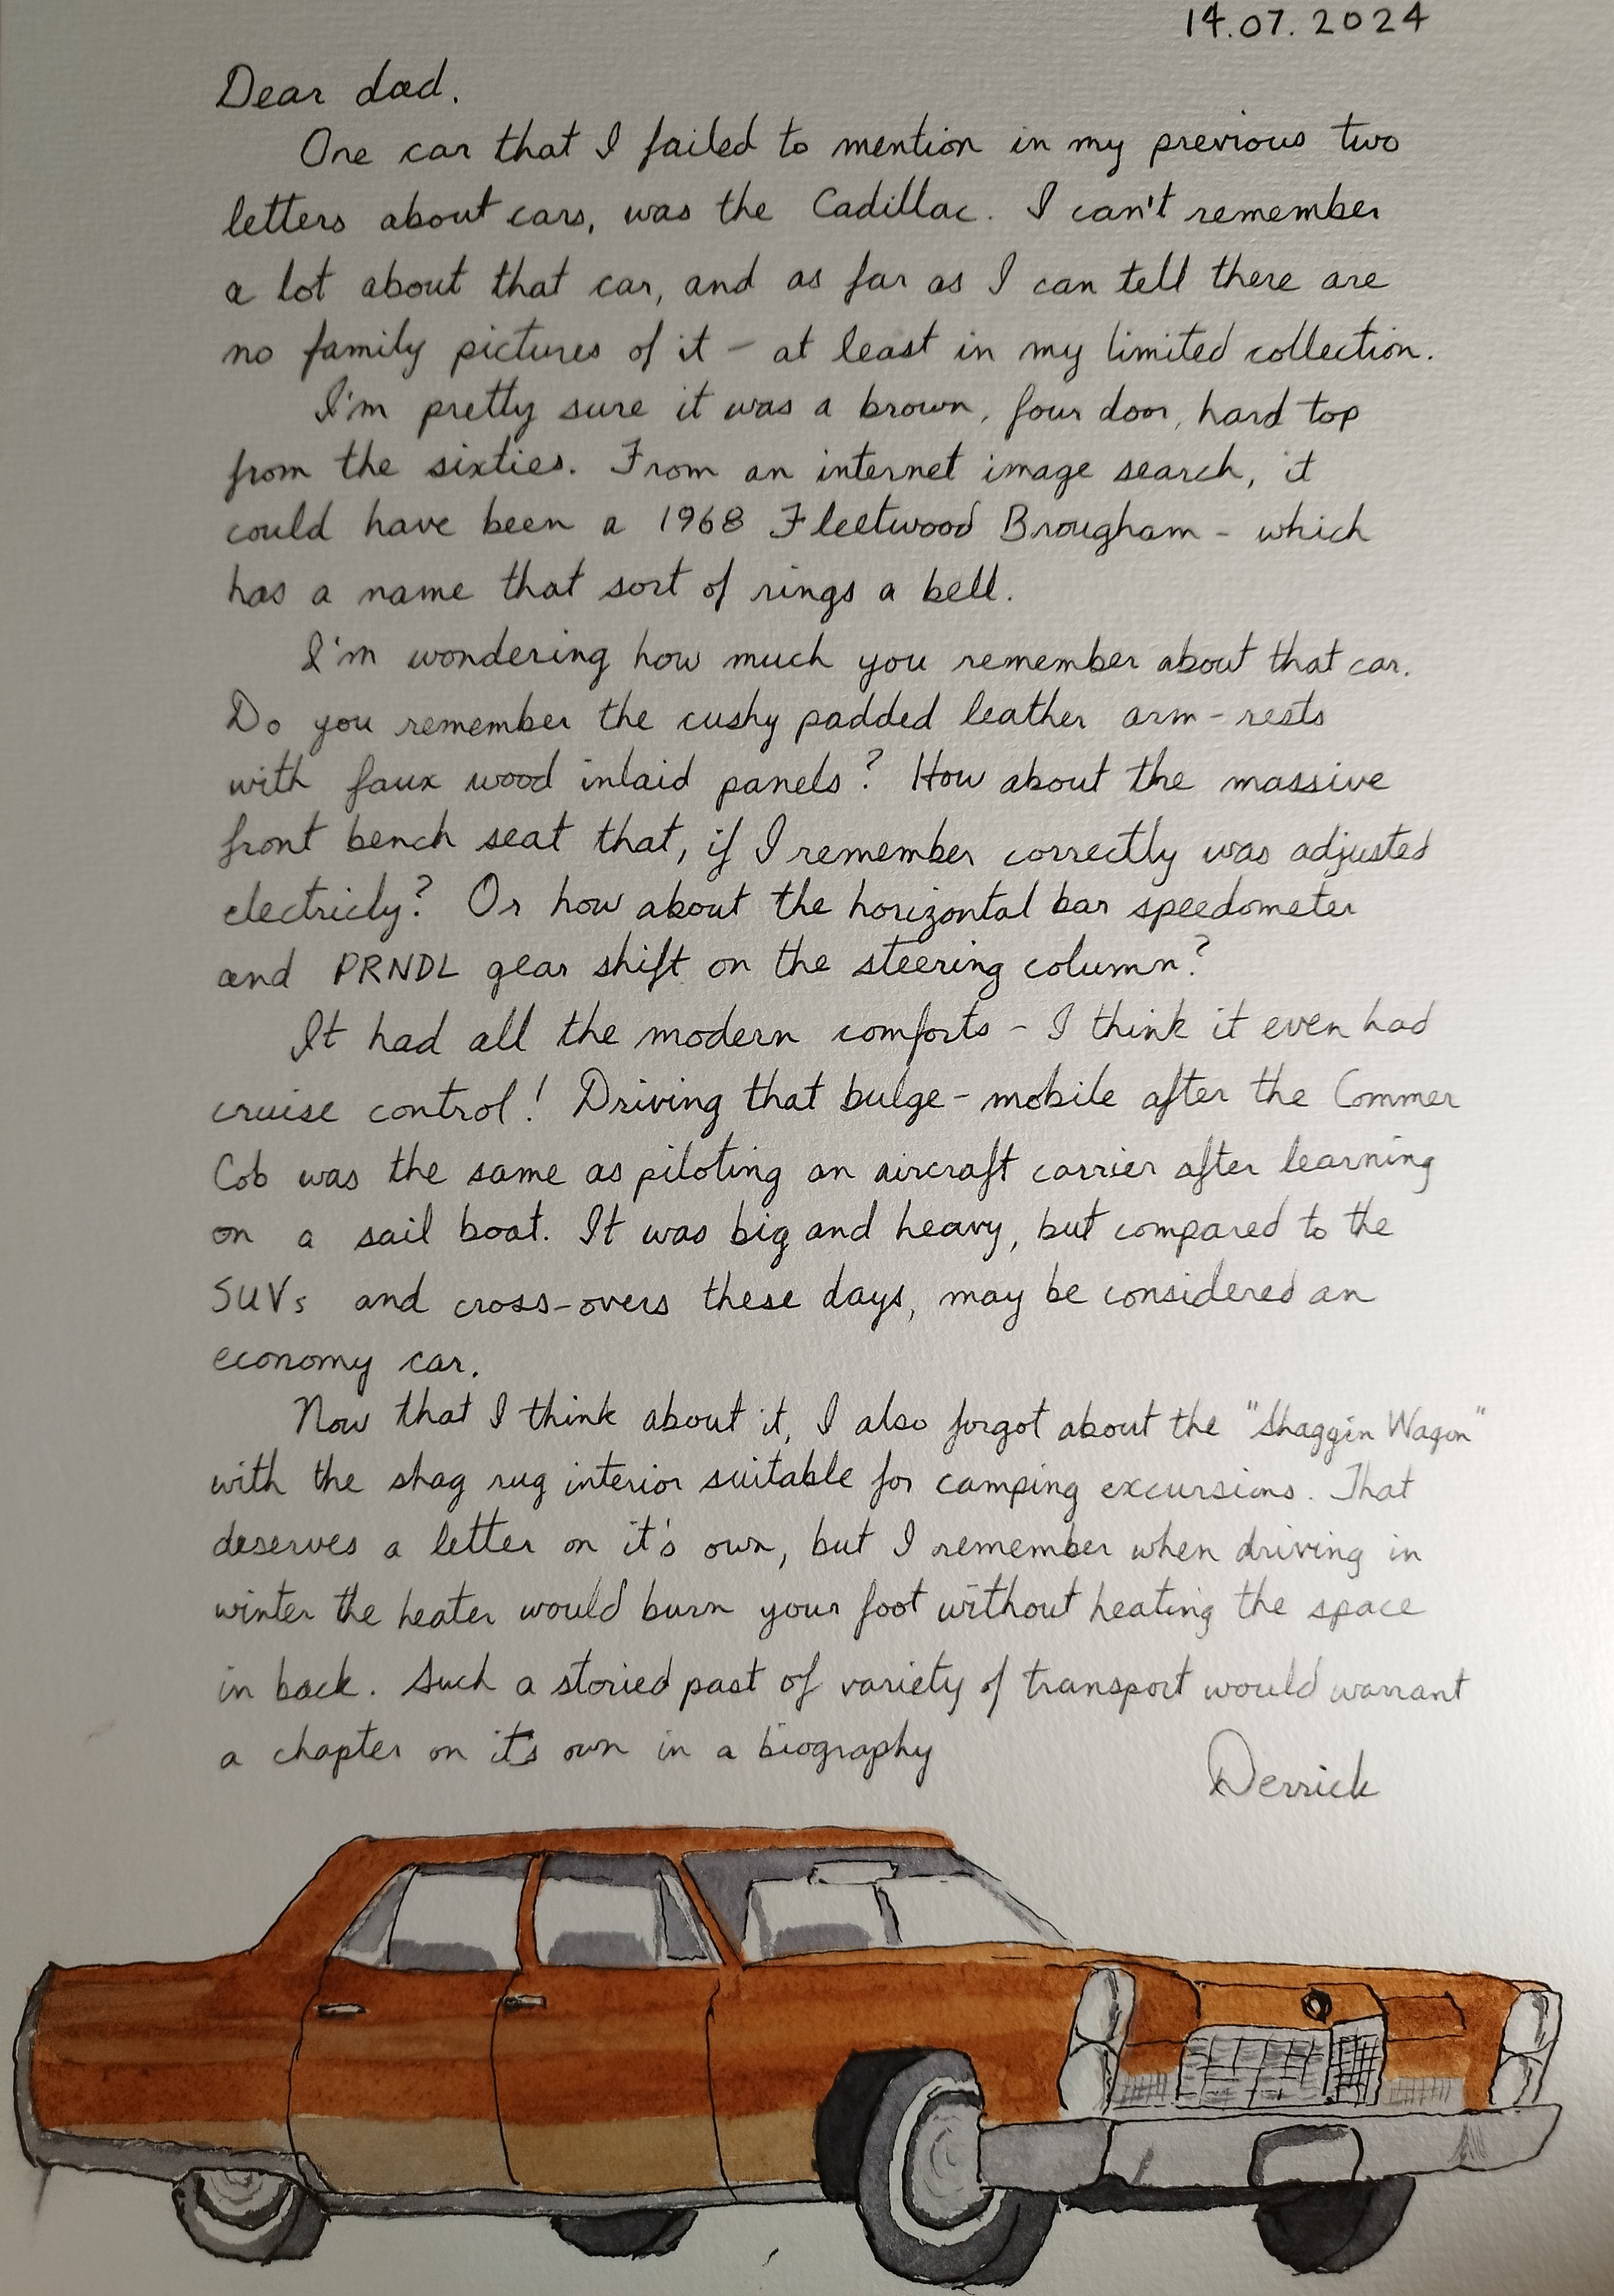 14.07.2024
Dear dad.
One car that I failed to mention in my previous two
letters about cars, was the Cadillac. I can't remember
a lot about that car, and as far as I can tell there are
no family pictures of it - at least in my limited collection.
I'm pretty sure it was a brown, four door, hard top
from the sixties. From an internet image search, it
could have been a 1968 Fleetwood Brougham - which
has a name that sort of rings a bell.
I'm wondering how much you remember about that car.
Do you remember the cushy padded leather arm-rests
with faux wood inlaid panels? How about the massive
front bench seat that, if I remember correctly was adjusted
electricly? Or how about the horizontal bar speedometer
and PRNDL gear shift on the steering column?
It had all the modern comforts - I think it even had
cruise control! Driving that bulge-mobile after the Commer
Cob was the same as piloting an aircraft carrier after learning
on a sail boat. It was big and heavy, but compared to the
SUVs and cross-overs these days, may be considered an
economy car.
Now that I think about it, I also forgot about the "Shaggin Wagon"
with the shag rug interior suitable for camping excursions. That
deserves a letter on it's own, but I remember when driving in
winter the heater would burn your foot without heating the space
in back. Such a storied past of variety of transport would warrant
a chapter on it's own in a biography
Derrick